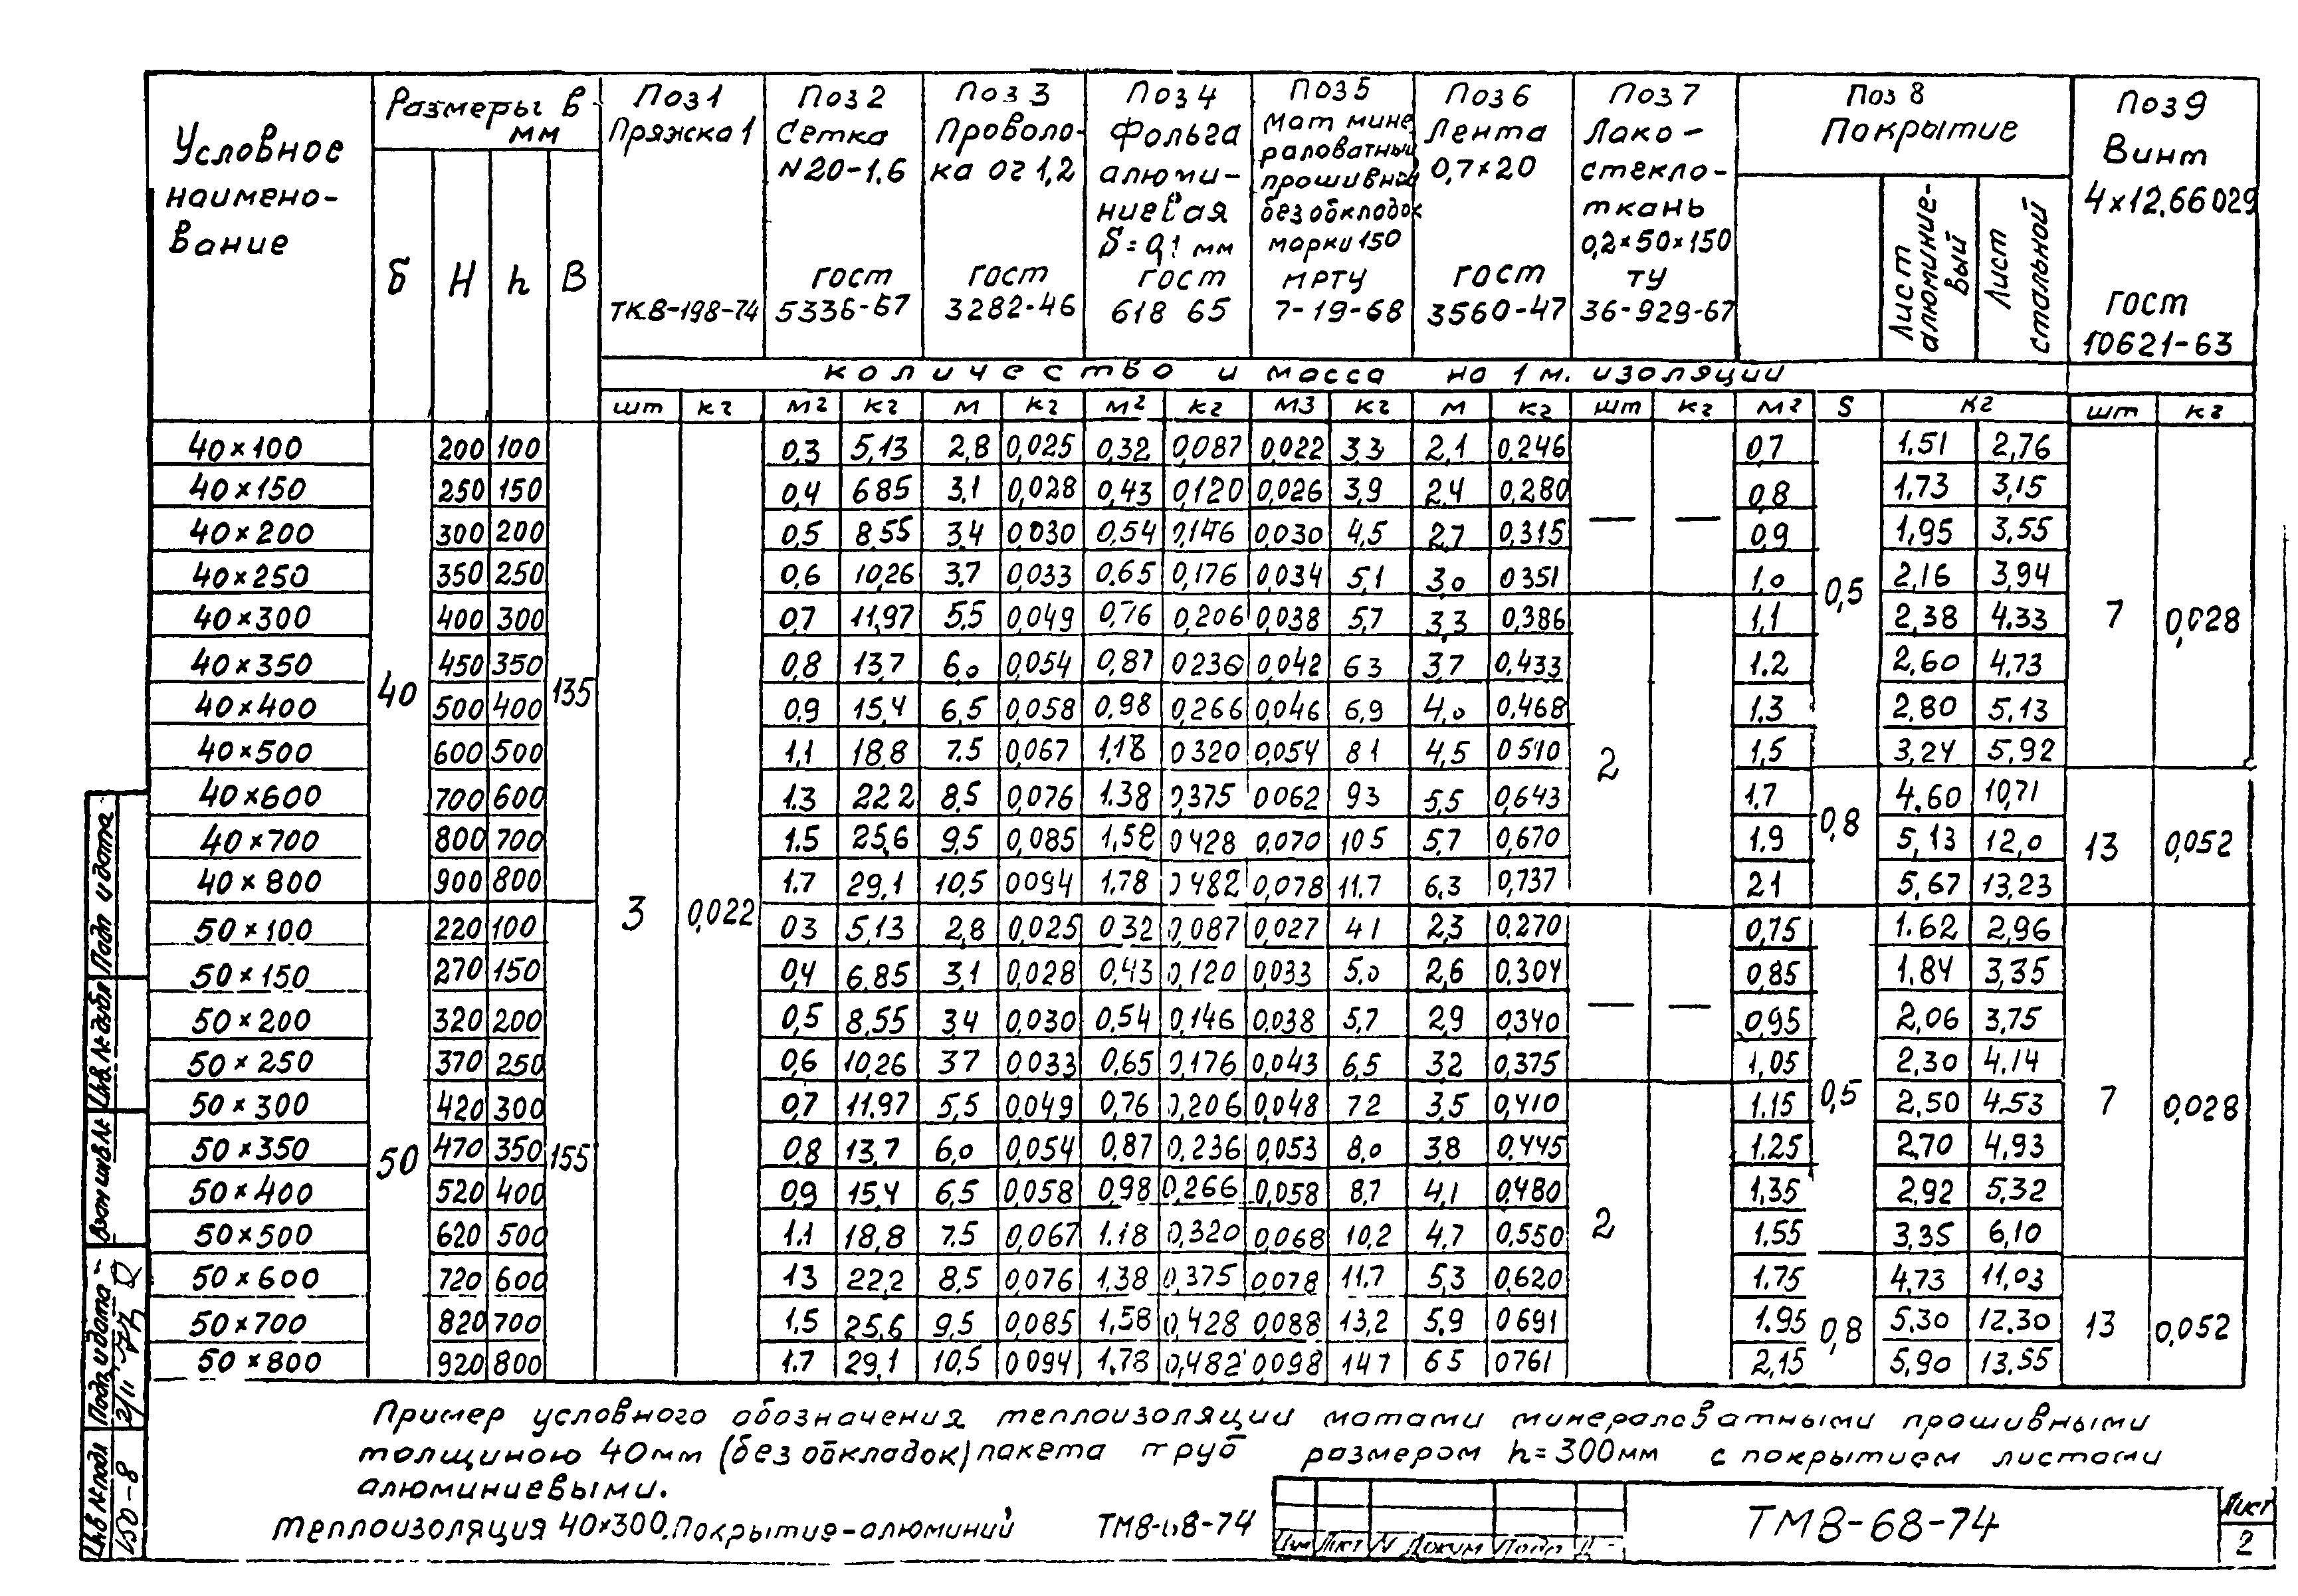 Условное наименование | Размеры в мм | Поз 1 Пряжка 1 | Поз 2 Сетка | Поз 3 Проволока ОГ 1,2 | Поз 4 Фольга алюминиевая | Поз 5 Мат минераловатный прошивной без обкладок марки 150 | Поз 6 Лента | Поз 7 Лакостеклоткань | Поз 8 Покрытие | Поз 9 Винт
N20-1.6 | S=0,1 мм | 0,7×20 | 0,2×50×150 | 4×12.66 029
б | H | h | B | Лист алюминиевый | Лист стальной
ТК8-198-74 | ГОСТ 5336-67 | ГОСТ 3282-46 | ГОСТ 618 65 | МРТУ 7-19-68 | ГОСТ 3560-47 | ТУ 36-929-67 | ГОСТ 10621-63
количество и масса на 1 м. изоляции
шт | кг | м2 | кг | м | кг | м2 | кг | м3 | кг | м | кг | шт | кг | м2 | S | кг | шт | кг
40×100 | 200 | 100 | 0,3 | 5,13 | 2,8 | 0,025 | 0,32 | 0,087 | 0,022 | 3,3 | 2,1 | 0,246 | 0,7 | 1,51 | 2,76
40×150 | 250 | 150 | 0,4 | 685 | 3,1 | 0,028 | 0,43 | 0,120 | 0,026 | 3,9 | 2,4 | 0,280 | 0,8 | 1,73 | 3,15
40×200 | 300 | 200 | 0,5 | 8,55 | 3,4 | 0,030 | 0,54 | 0,146 | 0,030 | 4,5 | 2,7 | 0,315 | 0,9 | 1,95 | 3,55
— | —
40×250 | 350 | 250 | 0,6 | 10,26 | 3,7 | 0,033 | 0,65 | 0,176 | 0,034 | 5,1 | 3,0 | 0351 | 1,0 | 2,16 | 3,94
0,5
40×300 | 400 | 300 | 0,7 | 11,97 | 5,5 | 0,049 | 0,76 | 0,206 | 0,038 | 5,7 | 3,3 | 0,386 | 1,1 | 2,38 | 4.33 | 7 | 0,028
40×350 | 450 | 350 | 0,8 | 13,7 | 6,0 | 0,054 | 0,87 | 0236 | 0,042 | 63 | 3,7 | 0,433 | 1.2 | 2,60 | 4,73
40 | 135
40×400 | 500 | 400 | 0,9 | 15,4 | 6,5 | 0,058 | 0,98 | 0,266 | 0,046 | 6,9 | 4,0 | 0,468 | 1.3 | 2,80 | 5,13
40×500 | 600 | 500 | 1,1 | 18,8 | 7.5 | 0,067 | 1,18 | 0320 | 0,054 | 81 | 4,5 | 0510 | 2 | 1,5 | 3,24 | 5,92
40×600 | 700 | 600 | 1.3 | 222 | 8,5 | 0,076 | 1.38 | 0,375 | 0062 | 93 | 5,5 | 0,643 | 1,7 | 4,60 | 10,71
0,8
40×700 | 800 | 700 | 1.5 | 25,6 | 9,5 | 0,085 | 1,58 | 0428 | 0,070 | 105 | 5,7 | 0,670 | 1.9 | 5,13 | 12,0 | 13 | 0,052
40×800 | 900 | 800 | 1.7 | 29,1 | 10,5 | 0094 | 1,78 | 0482 | 0,078 | 11.7 | 6.3 | 0,737 | 21 | 5,67 | 13,23
3 | 0,022
50×100 | 220 | 100 | 03 | 5,13 | 2,8 | 0,025 | 032 | 0,087 | 0,027 | 41 | 2,3 | 0.270 | 0,75 | 1.62 | 2,96
50×150 | 270 | 150 | 0,4 | 6,85 | 3,1 | 0,028 | 0,43 | 0,120 | 0,033 | 5,0 | 2,6 | 0,304 | 0,85 | 1.84 | 3,35
— | —
50×200 | 320 | 200 | 0,5 | 8,55 | 34 | 0,030 | 0,54 | 0,146 | 0,038 | 5,7 | 2,9 | 0340 | 0,95 | 2,06 | 3,75
50×250 | 370 | 250 | 0,6 | 10,26 | 37 | 0033 | 0,65 | 0,176 | 0,043 | 6,5 | 32 | 0,375 | 1,05 | 2,30 | 4.14
0,5
50×300 | 420 | 300 | 0,7 | 11.97 | 5,5 | 0,049 | 0,76 | 0,206 | 0,048 | 72 | 3,5 | 0,410 | 1.15 | 2,50 | 4.53 | 7 | 0,028
50×350 | 470 | 350 | 0,8 | 13,7 | 6,0 | 0,054 | 0,87 | 0.236 | 0,053 | 8,0 | 38 | 0,445 | 1.25 | 2,70 | 4,93
50 | 155
50×400 | 520 | 400 | 0,9 | 15,4 | 6,5 | 0,058 | 0,98 | 0,266 | 0,058 | 8,7 | 4,1 | 0,480 | 1,35 | 2,92 | 5,32
50×500 | 620 | 500 | 1.1 | 18,8 | 7.5 | 0,067 | 1.18 | 0,320 | 0,068 | 10,2 | 4,7 | 0,550 | 2 | 1.55 | 3,35 | 6,10
50×600 | 720 | 600 | 13 | 22,2 | 8,5 | 0,076 | 1,38 | 0,375 | 0078 | 11.7 | 5,3 | 0,620 | 1.75 | 4,73 | 11,03
50×700 | 820 | 700 | 1,5 | 25,6 | 9,5 | 0,085 | 1,58 | 0,428 | 0088 | 13,2 | 5,9 | 0691 | 1.95 | 0,8 | 5,30 | 12.30 | 13 | 0,052
50×800 | 920 | 800 | 1.7 | 29,1 | 10,5 | 0094 | 1,78 | 0,482 | 0098 | 147 | 65 | 0761 | 2,15 | 5,90 | 13,55
Пример условного обозначения теплоизоляции матами минераловатными прошивными
толщиною 40мм (без обкладок) пакета труб размером h=300мм с покрытием листами
алюминиевыми.
Теплоизоляция 40×300. Покрытие-алюминий ТМ8-68-74
Изм Лист N Докум Подп Д
ТМ8-68-74
Лист
2
Подп и дата
Инв. № дубл
Взам инв. №
Подп. и дата
Инв № подл
450-8